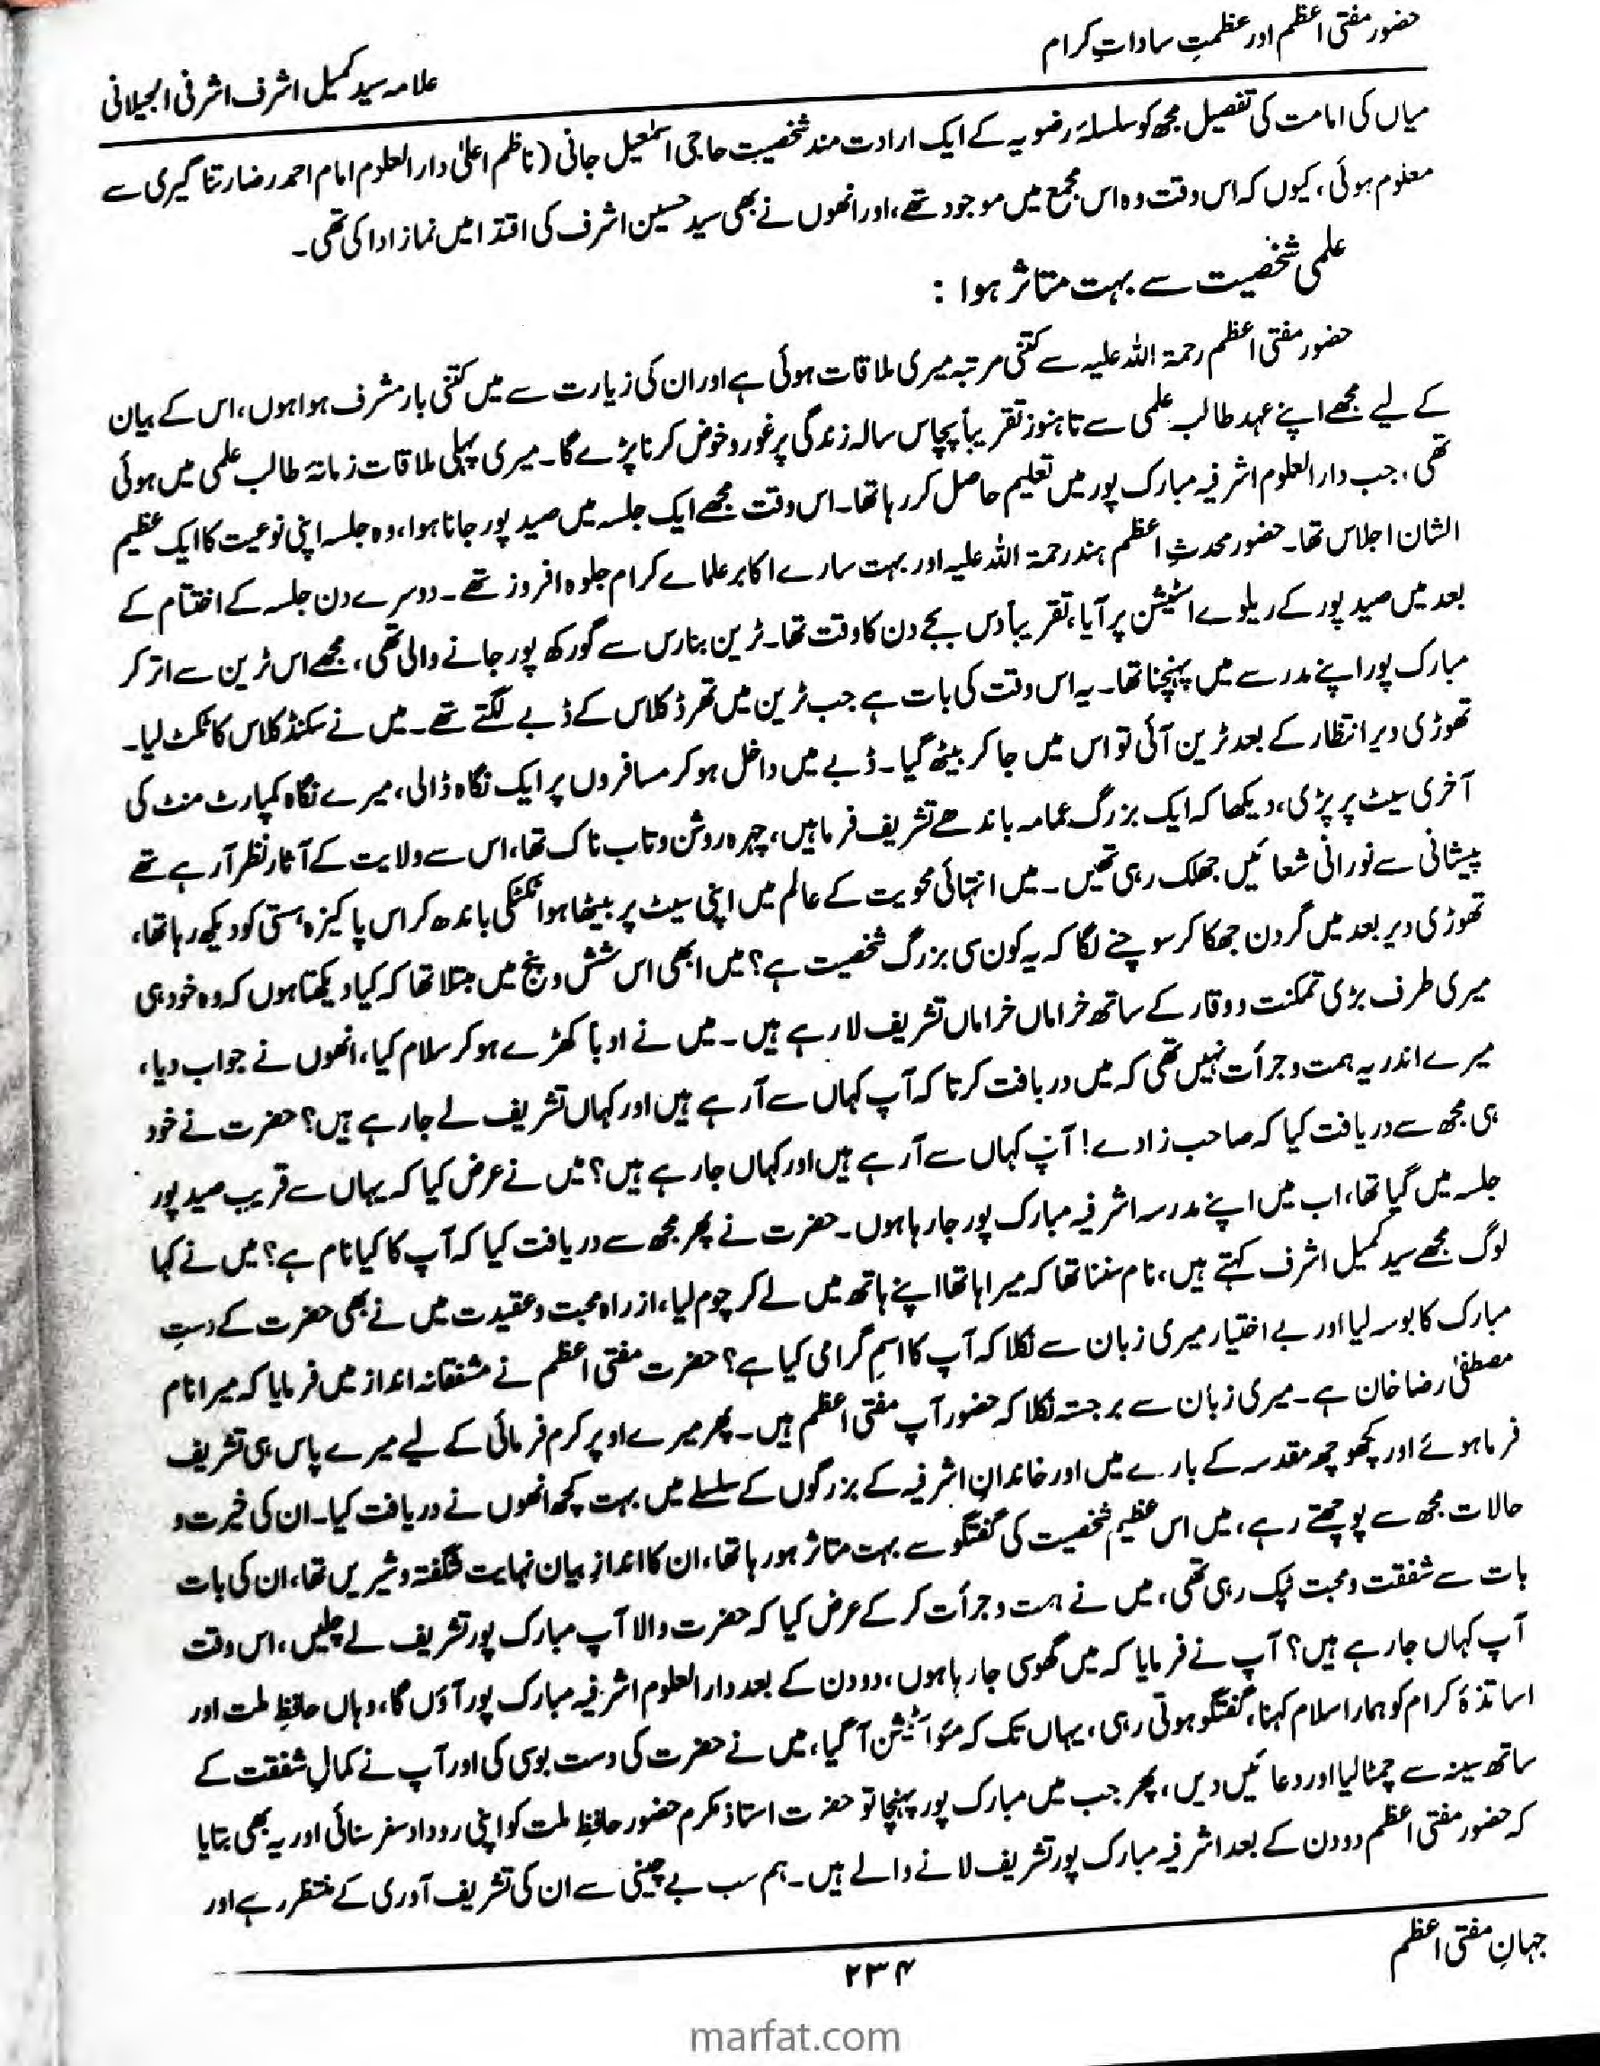 حضور مفتی اعظم اور عظمتِ ساداتِ کرام
علامہ سید کمیل اشرف اشرفی الجیلانی
میاں کی امامت کی تفصیل مجھ کو سلسلۂ رضویہ کے ایک ارادت مند شخصیت حاجی اسمٰعیل جانی (ناظم اعلیٰ دارالعلوم امام احمد رضا رتناگیری سے
معلوم ہوئی، کیوں کہ اس وقت وہ اس مجمع میں موجود تھے، اور انھوں نے بھی سید حسین اشرف کی اقتدا میں نماز ادا کی تھی۔
علمی شخصیت سے بہت متاثر ہوا :
حضور مفتی اعظم رحمۃ اللہ علیہ سے کتنی مرتبہ میری ملاقات ہوئی ہے اور ان کی زیارت سے میں کتنی بار مشرف ہوا ہوں، اس کے بیان
کے لیے مجھے اپنے عہد طالب علمی سے تا ہنوز تقریباً پچاس سالہ زندگی پر غور و خوض کرنا پڑے گا۔ میری پہلی ملاقات زمانۂ طالب علمی میں ہوئی
تھی، جب دارالعلوم اشرفیہ مبارک پور میں تعلیم حاصل کر رہا تھا۔ اس وقت مجھے ایک جلسہ میں صید پور جانا ہوا، وہ جلسہ اپنی نوعیت کا ایک عظیم
الشان اجلاس تھا۔ حضور محدثِ اعظم ہند رحمۃ اللہ علیہ اور بہت سارے اکابر علماے کرام جلوہ افروز تھے۔ دوسرے دن جلسہ کے اختتام کے
بعد میں صید پور کے ریلوے اسٹیشن پر آیا، تقریباً دس بجے دن کا وقت تھا۔ ٹرین بنارس سے گورکھ پور جانے والی تھی، مجھے اس ٹرین سے اتر کر
مبارک پور اپنے مدرسے میں پہنچنا تھا۔ یہ اس وقت کی بات ہے جب ٹرین میں تھرڈ کلاس کے ڈبے لگتے تھے۔ میں نے سکنڈ کلاس کا ٹکٹ لیا۔
تھوڑی دیر انتظار کے بعد ٹرین آئی تو اس میں جا کر بیٹھ گیا۔ ڈبے میں داخل ہو کر مسافروں پر ایک نگاہ ڈالی، میرے نگاہ کمپارٹ منٹ کی
آخری سیٹ پر پڑی، دیکھا کہ ایک بزرگ عمامہ باندھے تشریف فرما ہیں، چہرہ روشن و تاب ناک تھا، اس سے ولایت کے آثار نظر آرہے تھے
پیشانی سے نورانی شعائیں جھلک رہی تھیں۔ میں انتہائی محویت کے عالم میں اپنی سیٹ پر بیٹھا ہوا ٹکٹکی باندھ کر اس پاکیزہ ہستی کو دیکھ رہا تھا،
تھوڑی دیر بعد میں گردن جھکا کر سوچنے لگا کہ یہ کون سی بزرگ شخصیت ہے؟ میں ابھی اس شش و پنج میں مبتلا تھا کہ کیا دیکھتا ہوں کہ وہ خود ہی
میری طرف بڑی تمکنت و وقار کے ساتھ خراماں خراماں تشریف لا رہے ہیں۔ میں نے ادباً کھڑے ہو کر سلام کیا، انھوں نے جواب دیا،
میرے اندر یہ ہمت و جرأت نہیں تھی کہ میں دریافت کرتا کہ آپ کہاں سے آرہے ہیں اور کہاں تشریف لے جا رہے ہیں؟ حضرت نے خود
ہی مجھ سے دریافت کیا کہ صاحب زادے! آپ کہاں سے آرہے ہیں اور کہاں جا رہے ہیں؟ میں نے عرض کیا کہ یہاں سے قریب صید پور
جلسہ میں گیا تھا، اب میں اپنے مدرسہ اشرفیہ مبارک پور جا رہا ہوں۔ حضرت نے پھر مجھ سے دریافت کیا کہ آپ کا کیا نام ہے؟ میں نے کہا
لوگ مجھے سید کمیل اشرف کہتے ہیں، نام سننا تھا کہ میرا ہاتھ اپنے ہاتھ میں لے کر چوم لیا، از راہ محبت و عقیدت میں نے بھی حضرت کے دستِ
مبارک کا بوسہ لیا اور بے اختیار میری زبان سے نکلا کہ آپ کا اسمِ گرامی کیا ہے؟ حضرت مفتی اعظم نے مشفقانہ انداز میں فرمایا کہ میرا نام
مصطفٰی رضا خان ہے۔ میری زبان سے برجستہ نکلا کہ حضور آپ مفتی اعظم ہیں۔ پھر میرے اوپر کرم فرمائی کے لیے میرے پاس ہی تشریف
فرما ہوئے اور کچھوچھہ مقدسہ کے بارے میں اور خاندانِ اشرفیہ کے بزرگوں کے سلسلے میں بہت کچھ انھوں نے دریافت کیا۔ ان کی خیرت و
حالات مجھ سے پوچھتے رہے، میں اس عظیم شخصیت کی گفتگو سے بہت متاثر ہو رہا تھا، ان کا اندازِ بیان نہایت شگفتہ و شیریں تھا، ان کی بات
بات سے شفقت و محبت ٹپک رہی تھی، میں نے ہمت و جرأت کر کے عرض کیا کہ حضرت والا آپ مبارک پور تشریف لے چلیں، اس وقت
آپ کہاں جا رہے ہیں؟ آپ نے فرمایا کہ میں گھوسی جا رہا ہوں، دو دن کے بعد دارالعلوم اشرفیہ مبارک پور آؤں گا، وہاں حافظِ ملت اور
اساتذۂ کرام کو ہمارا سلام کہنا، گفتگو ہوتی رہی، یہاں تک کہ مئو اسٹیشن آگیا، میں نے حضرت کی دست بوسی کی اور آپ نے کمالِ شفقت کے
ساتھ سینہ سے چمٹا لیا اور دعائیں دیں، پھر جب میں مبارک پور پہنچا تو حضرت استاذ مکرم حضور حافظِ ملت کو اپنی روداد سفر سنائی اور یہ بھی بتایا
کہ حضور مفتی اعظم دو دن کے بعد اشرفیہ مبارک پور تشریف لانے والے ہیں۔ ہم سب بے چینی سے ان کی تشریف آوری کے منتظر رہے اور
جہانِ مفتی اعظم
۲۳۴
marfat.com